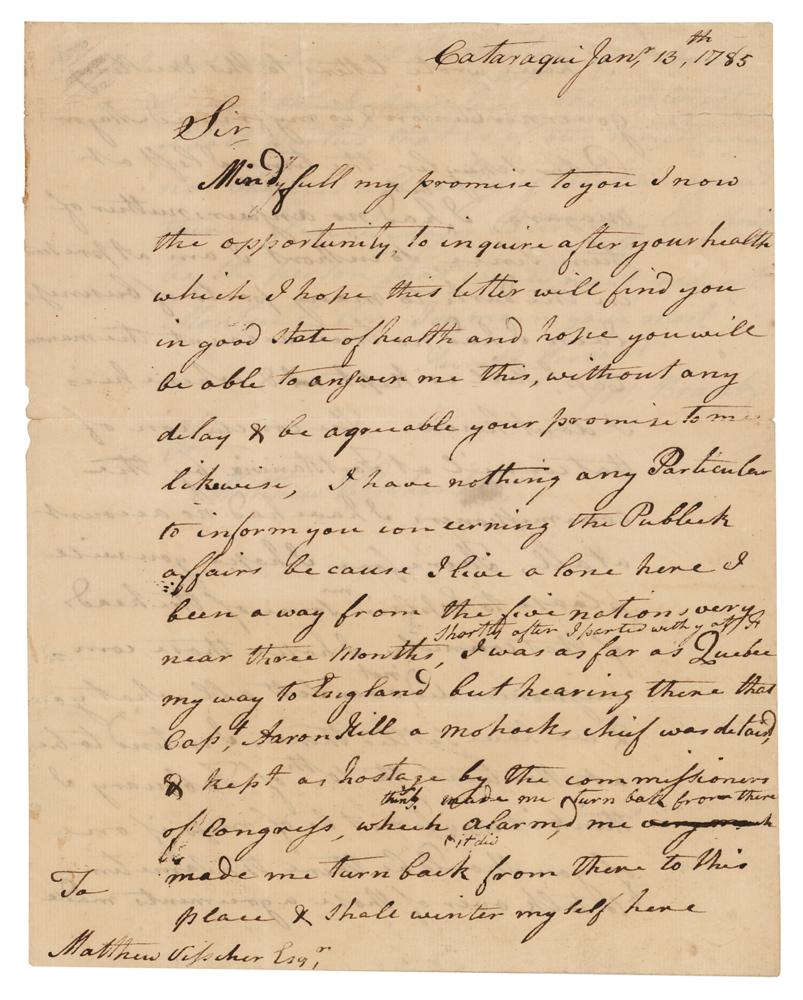 Cataraqui Janr, 13,th 1785
Sir,
Mindfull my promise to you I now
the opportunity, to inquire after your health
which I hope this letter will find you
in good state of health and hope you will
be able to answer me this, without any
delay & be agreeable your promise to me
likewise, I have nothing any Particular
to inform you concerning the Publeek
affairs because I live alone here I
been away from the five nations very
shortly after I parted with y at F. S
near three Months, I was as far as Quebec
my way to England but hearing there that
Capt, Aaron Hill a mohocks chief was detaind,
& kept as hostage by the commissioners
made me turn back from there
of Congress, which alarm,d me very much
it did
made me turn back from there to this
place & shall winter myself here
To
Matthew Visscher Esqr,